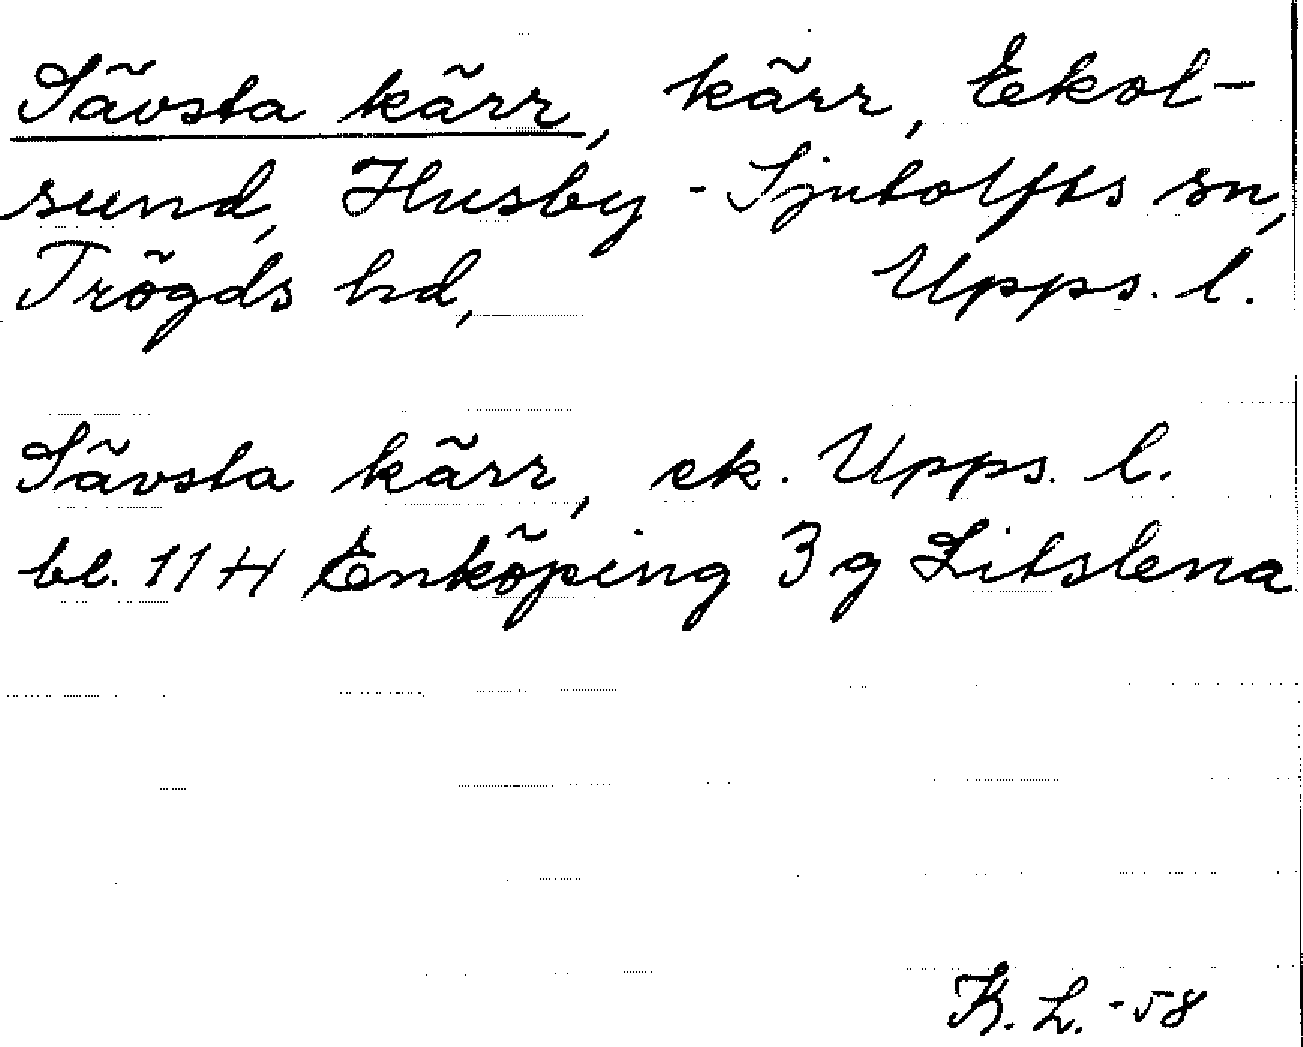 Sävsta kärr, kärr, Ekol-
sund, Husby-Sjutolfts sn,
Trögds hd, Upps. l.
Sävsta kärr, ek. Upps. l.
bl. 11 H Enköping 3 g Litslena
K. L. -58